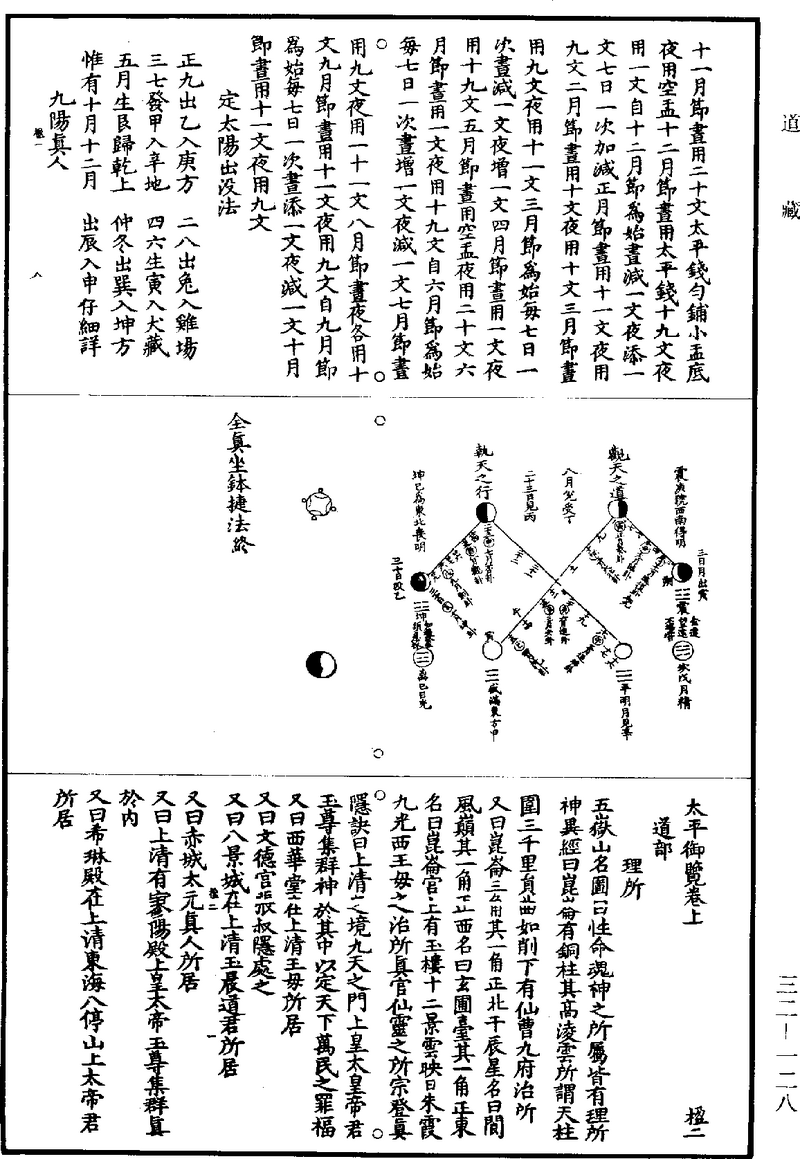 道藏
三二—一二八
十一月節晝用二十文太平錢勻鋪小盂底
夜用空盂十二月節晝用太平錢十九文夜
用一文自十二月節爲始晝減一文夜添一
文七日一次加減正月節晝用十一文夜用
九文二月節晝用十文夜用十文三月節晝
用九文夜用十一文三月節爲始每七日一
次晝減一文夜增一文四月節晝用一文夜
用十九文五月節晝用空盂夜用二十文六
月節晝用一文夜用十九文自六月節爲始
每七日一次晝增一文夜減一文七月節晝
用九文夜用一十一文八月節晝夜各用十
文九月節晝用十一文夜用九文自九月節
爲始每七日一次晝添一文夜減一文十月
節晝用十一文夜用九文
定太陽出没法
正九出乙入庚方 二八出兔入雞場
三七發甲入辛地 四六生寅入犬藏
五月生艮歸乾上 仲冬出巽入坤方
惟有十月十二月 出辰入申仔細詳
九陽真人
卷一 八
震庚號西南得明
三日月出庚
☳震
坎戊月精
觀天之道
八月兌受丁
二十三日見丙
執天之行
坤已爲東北喪明
三十日改乙
☷坤
離已日光
☰盛滿東方甲
☴平明月見辛
全真坐鉢捷法終
太平御覽卷上 楹二
道部
理所
五嶽山名圖曰性命魂神之所屬皆有理所
神異經曰崑崙有銅柱其髙淩雲所謂天柱
圍三千里員曲如削下有仙曹九府治所
又曰崑崙三角其一角正北干辰星名曰閬
風巔其一角正西名曰玄圃臺其一角正東
名曰崑崙宫上有玉樓十二景雲映日朱霞
九光西王母之治所真官仙靈之所宗登真
隱訣曰上清之境九天之門上皇太皇帝君
玉尊集群神於其中以定天下萬民之罪福
又曰西華堂在上清王母所居
又曰文德宫張叔隱處之
又曰八景城在上清玉晨道君所居
卷二 一
又曰赤城太元真人所居
又曰上清有寥陽殿上皇太帝玉尊集群真
於内
又曰希琳殿在上清東海八停山上太帝君
所居